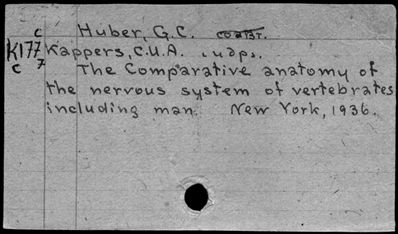 c Huber, G.C.
K177 Kappers, C.U.A.
c 7 The Comparative anatomy of
the nervous system of vertebrates
including man. New York, 1936.